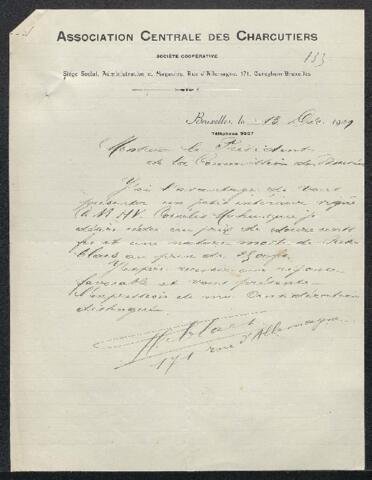 ASSOCIATION CENTRALE DES CHARCUTIERS
SOCIÉTÉ COOPÉRATIVE
133
Siège Social, Administration et Magasins, Rue d'Allemagne, 171, Cureghem-Bruxelles
Bruxelles, le 13 Déc. 1909
Téléphone 9207
Monsieur le Président
de la Commission du Musée
J'ai l'avantage de vous
présenter un petit intérieur signé
désire céder au prix de douze cents
frs et une nature morte de
au prix de
J'espère recevoir une réponse
favorable et vous présente
l'expression de ma considération
distinguée
171 rue d'Allemagne